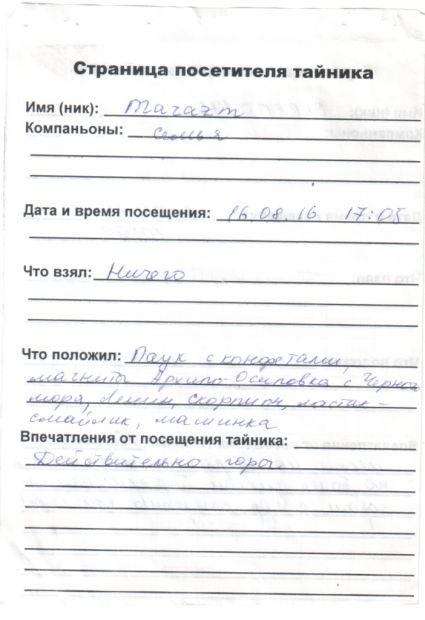 Страница посетителя тайника
Имя (ник): тагахт
Компаньоны: семья
Дата и время посещения: 16.08.16 17:05
Что взял: Ничего
Что положил: Паук с конфетами,
магниты Архипо-Осиповка с Черного
моря, Ленин, скорпион, ластик-
смайлик, машинка
Впечатления от посещения тайника:
Действительно горы